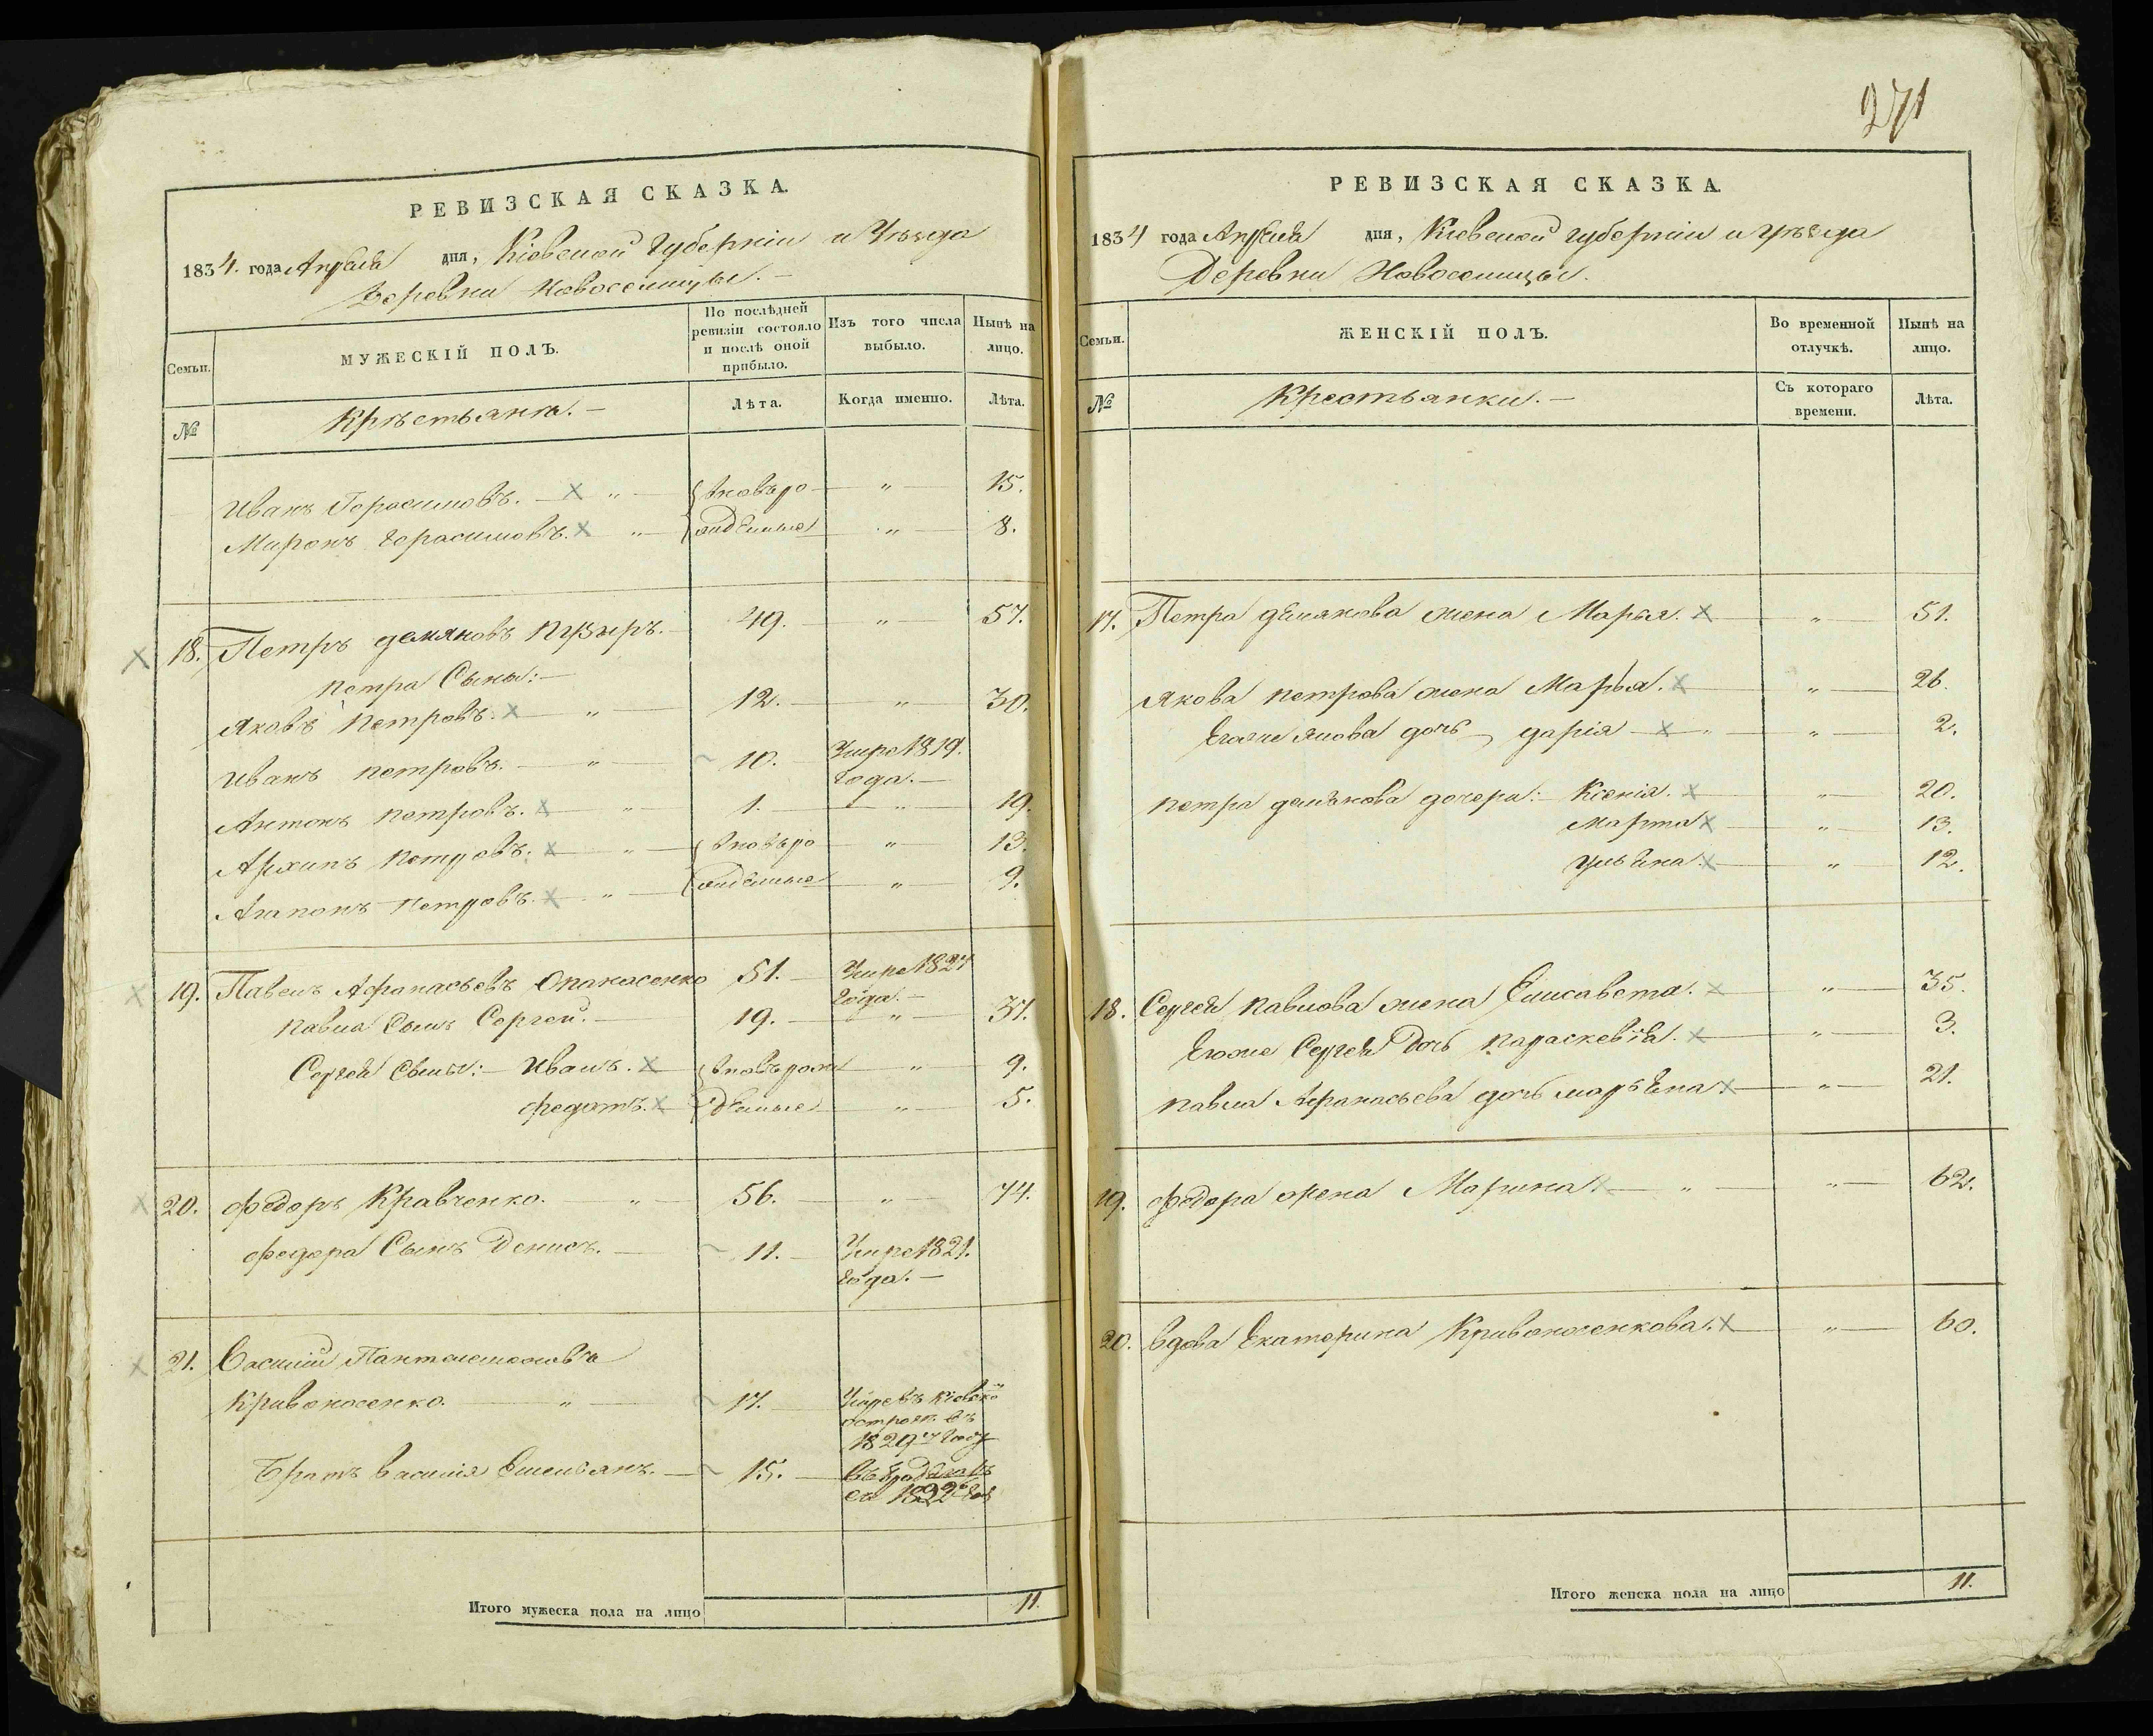 271
РЕВИЗСКАЯ СКАЗКА.
1834. года Апреля дня, Кіевской Губерніи и Уѣзда
Деревни Новоселицы.
Семьи.
МУЖЕСКІЙ ПОЛЪ.
По послѣдней ревизіи состояло и послѣ оной прибыло.
Изъ того числа выбыло.
Нынѣ на лицо.
№
Крѣстьяня.
Лѣта.
Когда именно.
Лѣта.
Иванъ Герасимовъ. X " { вновъро " 15.
Миронъ Герасимовъ. X " { " 8.
X 18. Петръ демяновъ пузиръ. 49. " 57.
петра Сыны:
Яковъ петровъ. X " 12. " 30.
Иванъ петровъ. " 10. Умре 1819.
Года.
Антонъ петровъ. X " 1. " 19.
Архипъ петровъ. X " { вновъро " 13.
Агапонъ петровъ. X " { " 9.
X 19. Павелъ Афанасьевъ Опанасенко 51. Умре 1827
Года.
павла Сынъ Сергей. 19. " 37.
Сергея Сыны: Иванъ. X { вновърож " 9.
федотъ. X { денные " 5.
X 20. федоръ Кравченко. " 56. " 74.
федора Сынъ Денисъ. 11. Умре 1821.
Года.
X 21. Василий Пантелемоновъ
Кривоносенко. " 17.
1829 году
Братъ василия Емельянъ. 15.
Итого мужеска пола на лицо 11.
РЕВИЗСКАЯ СКАЗКА.
1834 года Апреля дня, Кіевской губерніи и уѣзда
Деревни Новоселицы.
Семьи.
ЖЕНСКІЙ ПОЛЪ.
Во временной отлучкѣ.
Нынѣ на лицо.
№
Крестьянки.
Съ котораго времени.
Лѣта.
17. Петра демянова жена Марья. X " 51.
Якова петрова жена Марья. X " 26.
Егоже Якова дочь дарія X " " 2.
петра демянова дочери: Ксенія. X " 20.
Марта X " 13.
Ульена X " 12.
18. Сергея павлова жена Елисавета. X " 35.
Егоже Сергея дочь параскевія. X " 3.
павла Афанасьева дочь марьена X " 21.
19. федора жена Марина. X " " 62.
20. вдова Екатерина Кривоносенкова. X " 60.
Итого женска пола на лицо 11.